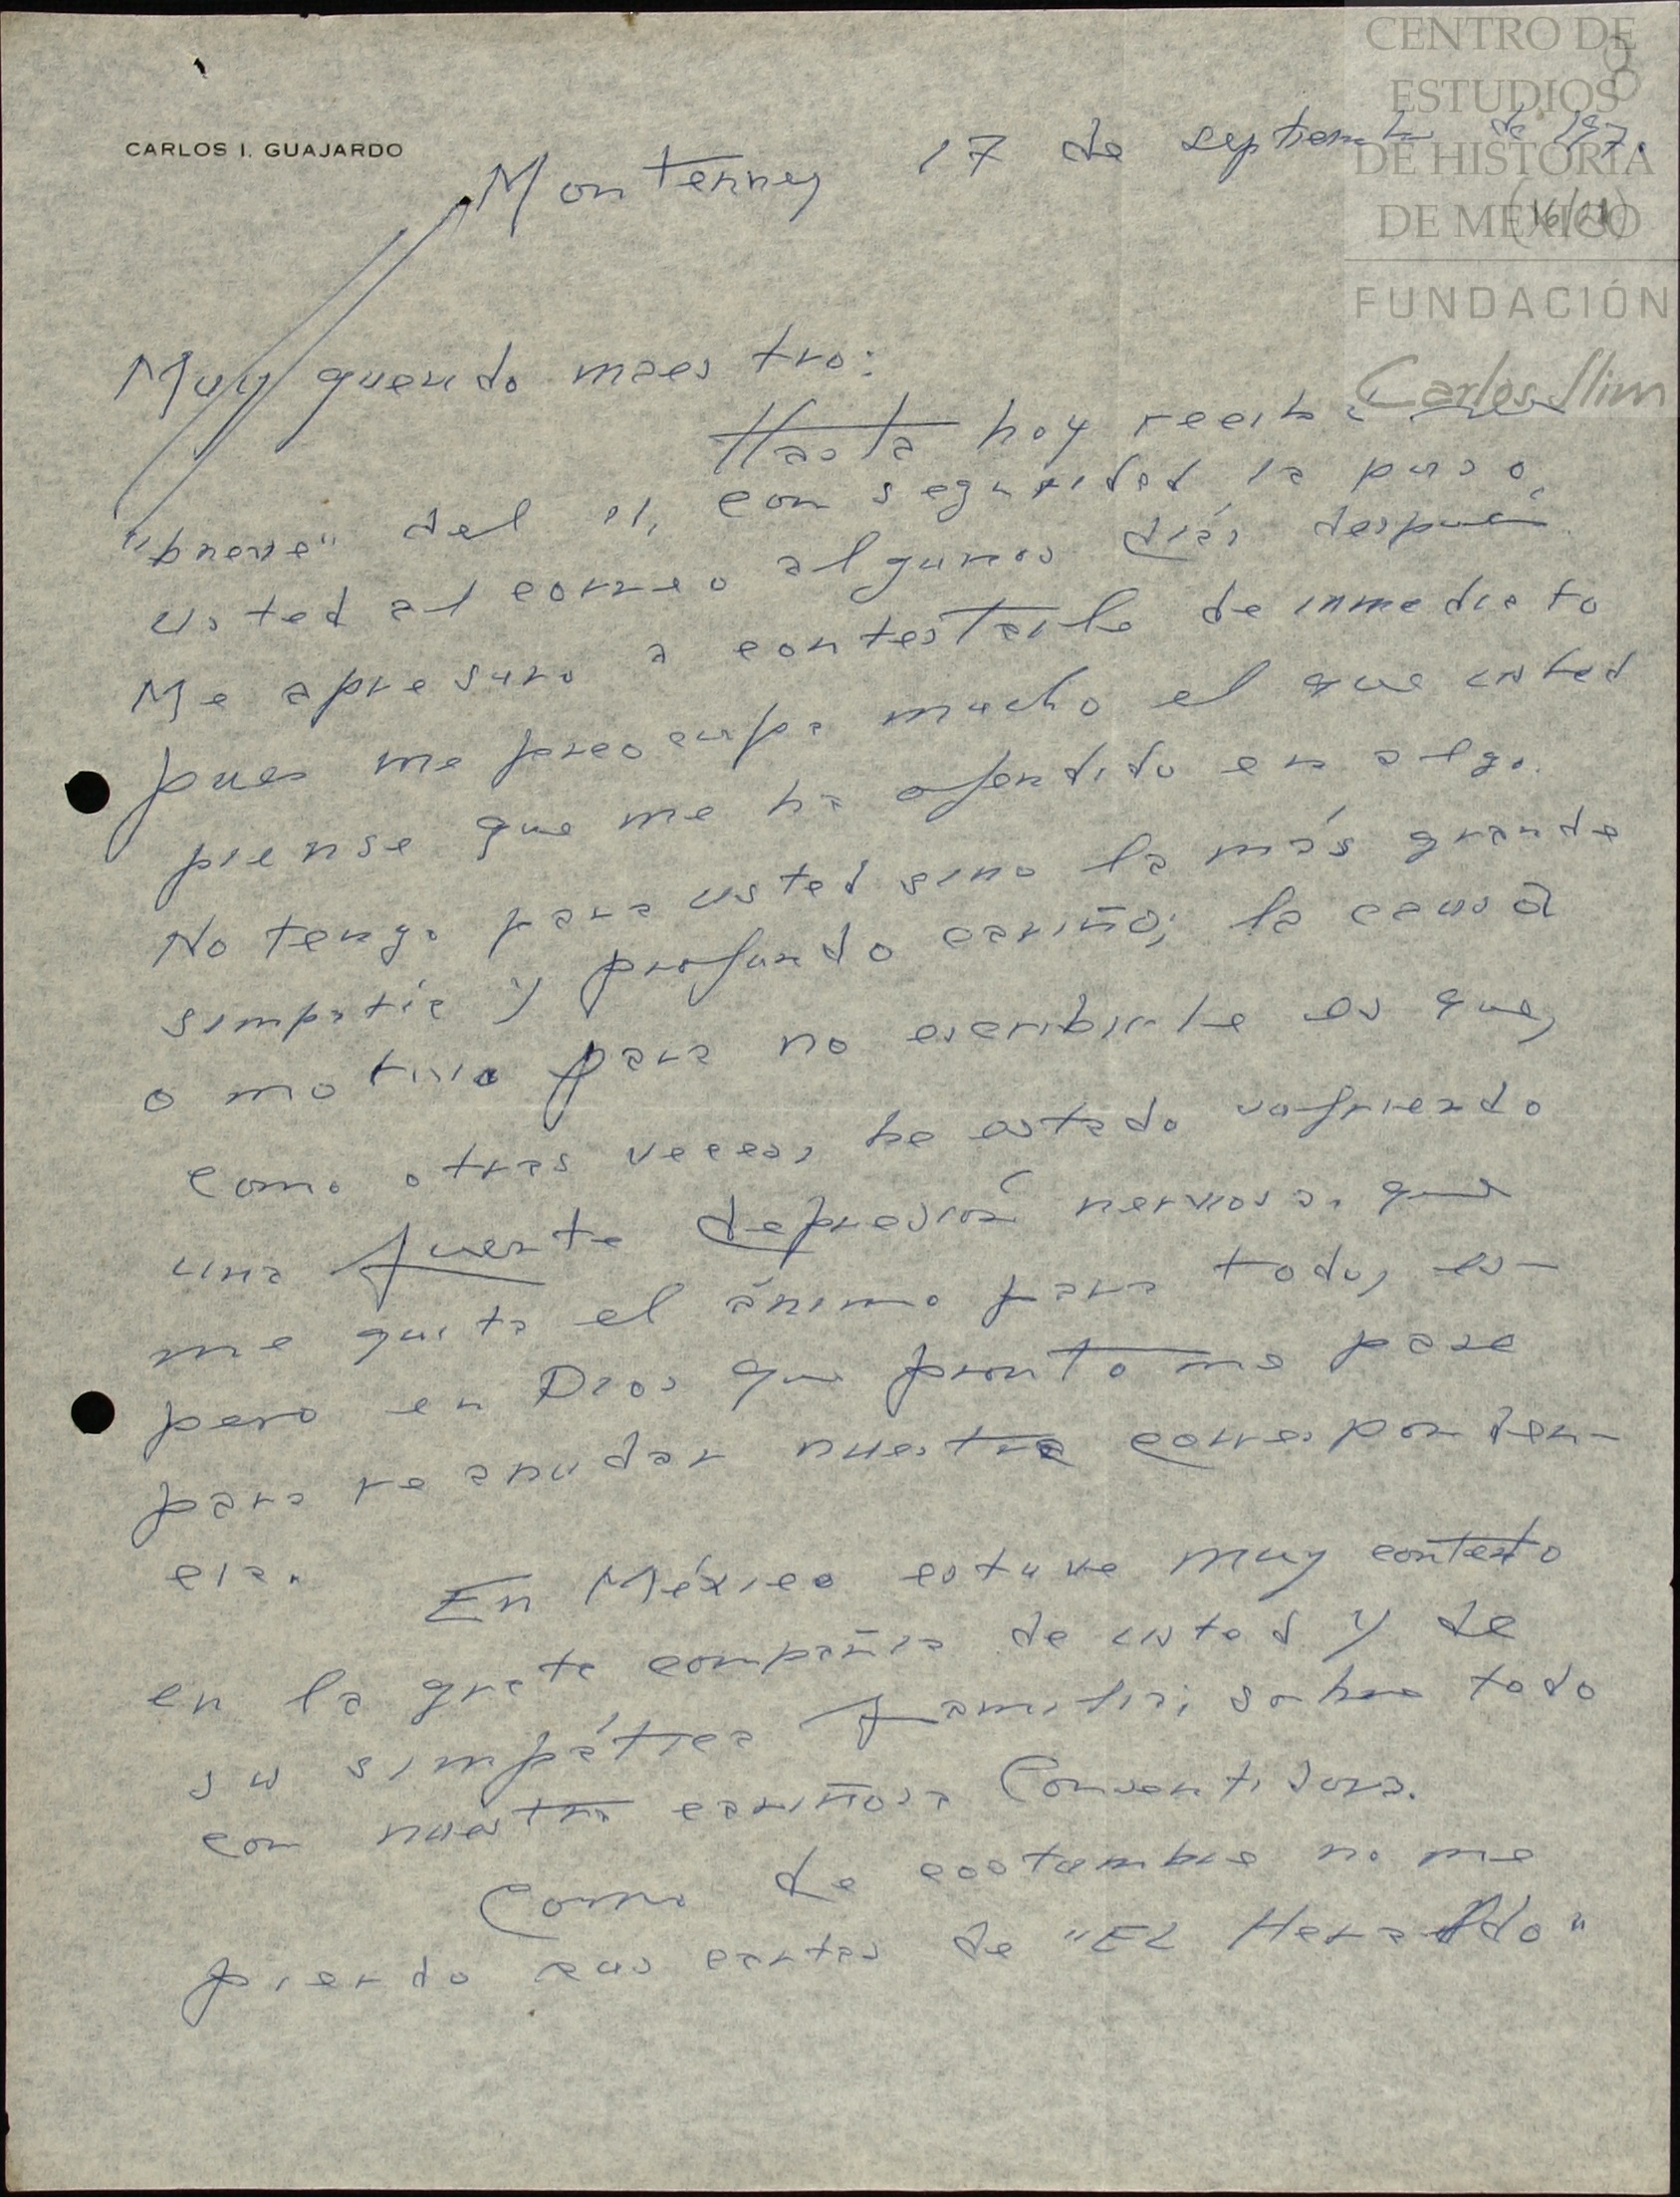 CENTRO DE
ESTUDIOS
DE HISTORIA
DE MEXICO
FUNDACIÓN
Carlos Slim
8
CARLOS I. GUAJARDO
Monterrey 17 de septiembre de 197.
Muy querido maestro:
Hasta hoy recibí su
"breve" del 11, con seguridad la puso
usted al correo algunos días después.
Me apresuro a contestarle de inmediato
pues me preocupa mucho el que usted
piense que me ha ofendido en algo.
No tengo para usted sino la más grande
simpatía y profundo cariño; la causa
o motivo para no escribirle es que,
como otras veces, he estado sufriendo
una fuerte depresión nerviosa que
me quita el ánimo para todo, es-
pero en Dios que pronto me pase
para reanudar nuestra corresponden-
cia.
En México estuve muy contento
en la grata compañía de usted y de
su simpática familia; sobre todo
con nuestra cariñosa Consentidora.
Como de costumbre no me
pierdo sus cartas de "EL Heraldo"